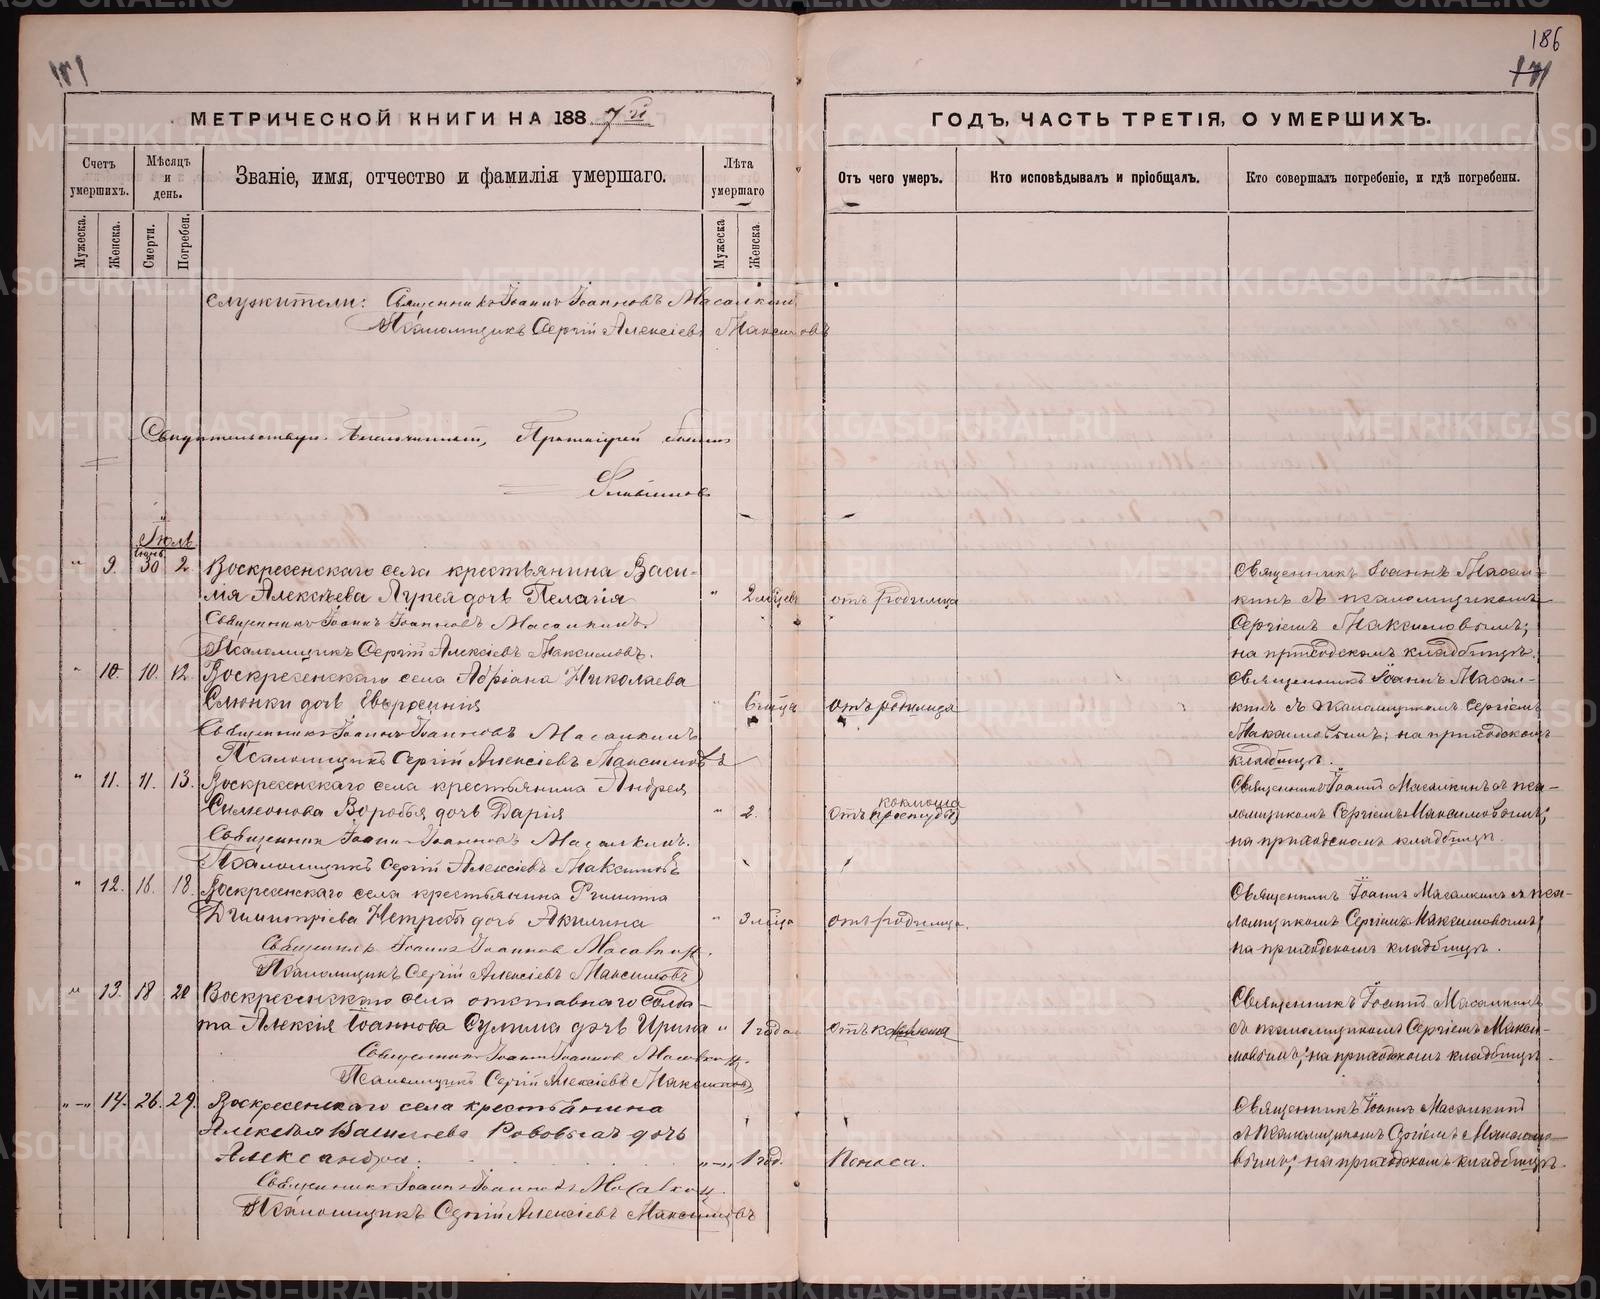 186
171
171
МЕТРИЧЕСКОЙ КНИГИ НА 1887й
ГОДЪ, ЧАСТЬ ТРЕТІЯ, О УМЕРШИХЪ.
Счетъ умершихъ.
Мѣсяцъ и день.
Званіе, имя, отчество и фамилія умершаго.
Лѣта умершаго
Отъ чего умеръ.
Кто исповѣдывалъ и пріобщалъ.
Кто совершалъ погребеніе, и гдѣ погребены.
Мужеска.
Женска.
Смерти.
Погребен.
Мужеска
Женска.
служители: Священникъ Іоаннъ Іоанновъ Масалкинъ
Псаломщикъ Сергій Алексіевъ Максимовъ
Протоіерей
Іюль
Іюнь
" 9. 30 2. Воскресенскаго села крестьянина Васи-
лія Алексѣева дочь Пелагія " 2 мѣсяцевъ отъ родимца
Священникъ Іоаннъ Іоанновъ Масалкинъ.
Псаломщикъ Сергій Алексіевъ Максимовъ.
Священникъ Іоаннъ Масал-
кинъ съ псаломщикомъ
Сергіемъ Максимовымъ;
на приходскомъ кладбищѣ.
" 10. 10. 12. Воскресенскаго села Адріана Николаева
дочь Евфросинія " 6 мѣсяца отъ родимца
Священникъ Іоаннъ Іоанновъ Масалкинъ
Псаломщикъ Сергій Алексіевъ Максимовъ
Священникъ Іоаннъ Масал-
кинъ съ псаломщикомъ Сергіемъ
Максимовымъ; на приходскомъ
кладбищѣ.
" 11. 11. 13. Воскресенскаго села крестьянина Андрея
Симеонова Воробья дочь Дарія " 2. Отъ коклюша
Священникъ Іоаннъ Іоанновъ Масалкинъ.
Псаломщикъ Сергій Алексіевъ Максимовъ
Священникъ Іоаннъ Масалкинъ съ пса-
ломщикомъ Сергіемъ Максимовымъ;
на приходскомъ кладбищѣ.
" 12. 16. 18. Воскресенскаго села крестьянина
Димитріева дочь Акилина " 3 мѣсяца отъ родимца.
Священникъ Іоаннъ Іоанновъ Масалкинъ.
Псаломщикъ Сергій Алексіевъ Максимовъ
Священникъ Іоаннъ Масалкинъ съ пса-
ломщикомъ Сергіемъ Максимовымъ;
на приходскомъ кладбищѣ.
" 13. 18 20 Воскресенскаго села отставнаго солда-
та Алексія Іоаннова Сулима дочь Ирина " 1 года отъ коклюша
Священникъ Іоаннъ Іоанновъ Масалкинъ.
Псаломщикъ Сергій Алексіевъ Максимовъ
Священникъ Іоаннъ Масалкинъ
съ псаломщикомъ Сергіемъ Макси-
мовымъ; на приходскомъ кладбищѣ.
"—" 14. 26. 29. Воскресенскаго села крестьянина
Алексѣя Васильева дочь
Александра. "—" 1 год. Поноса.
Священникъ Іоаннъ Іоанновъ Масалкинъ.
Псаломщикъ Сергій Алексіевъ Максимовъ
Священникъ Іоаннъ Масалкинъ
съ Псаломщикомъ Сергіемъ Максимо-
вымъ; на приходскомъ кладбищѣ.
METRIKI.GASO-URAL.RU